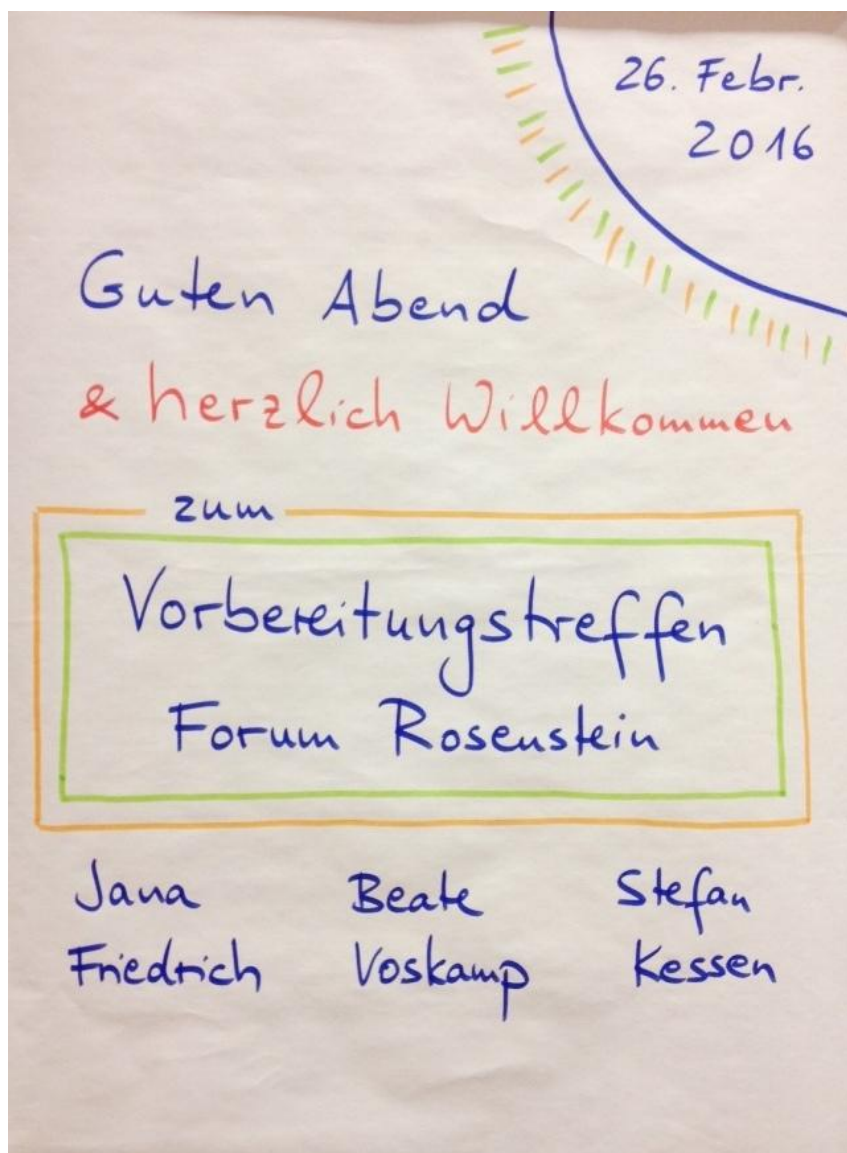 26. Febr.
2016
Guten Abend
& herzlich Willkommen
zum
Vorbereitungstreffen
Forum Rosenstein
Jana Beate Stefan
Friedrich Voskamp Kessen